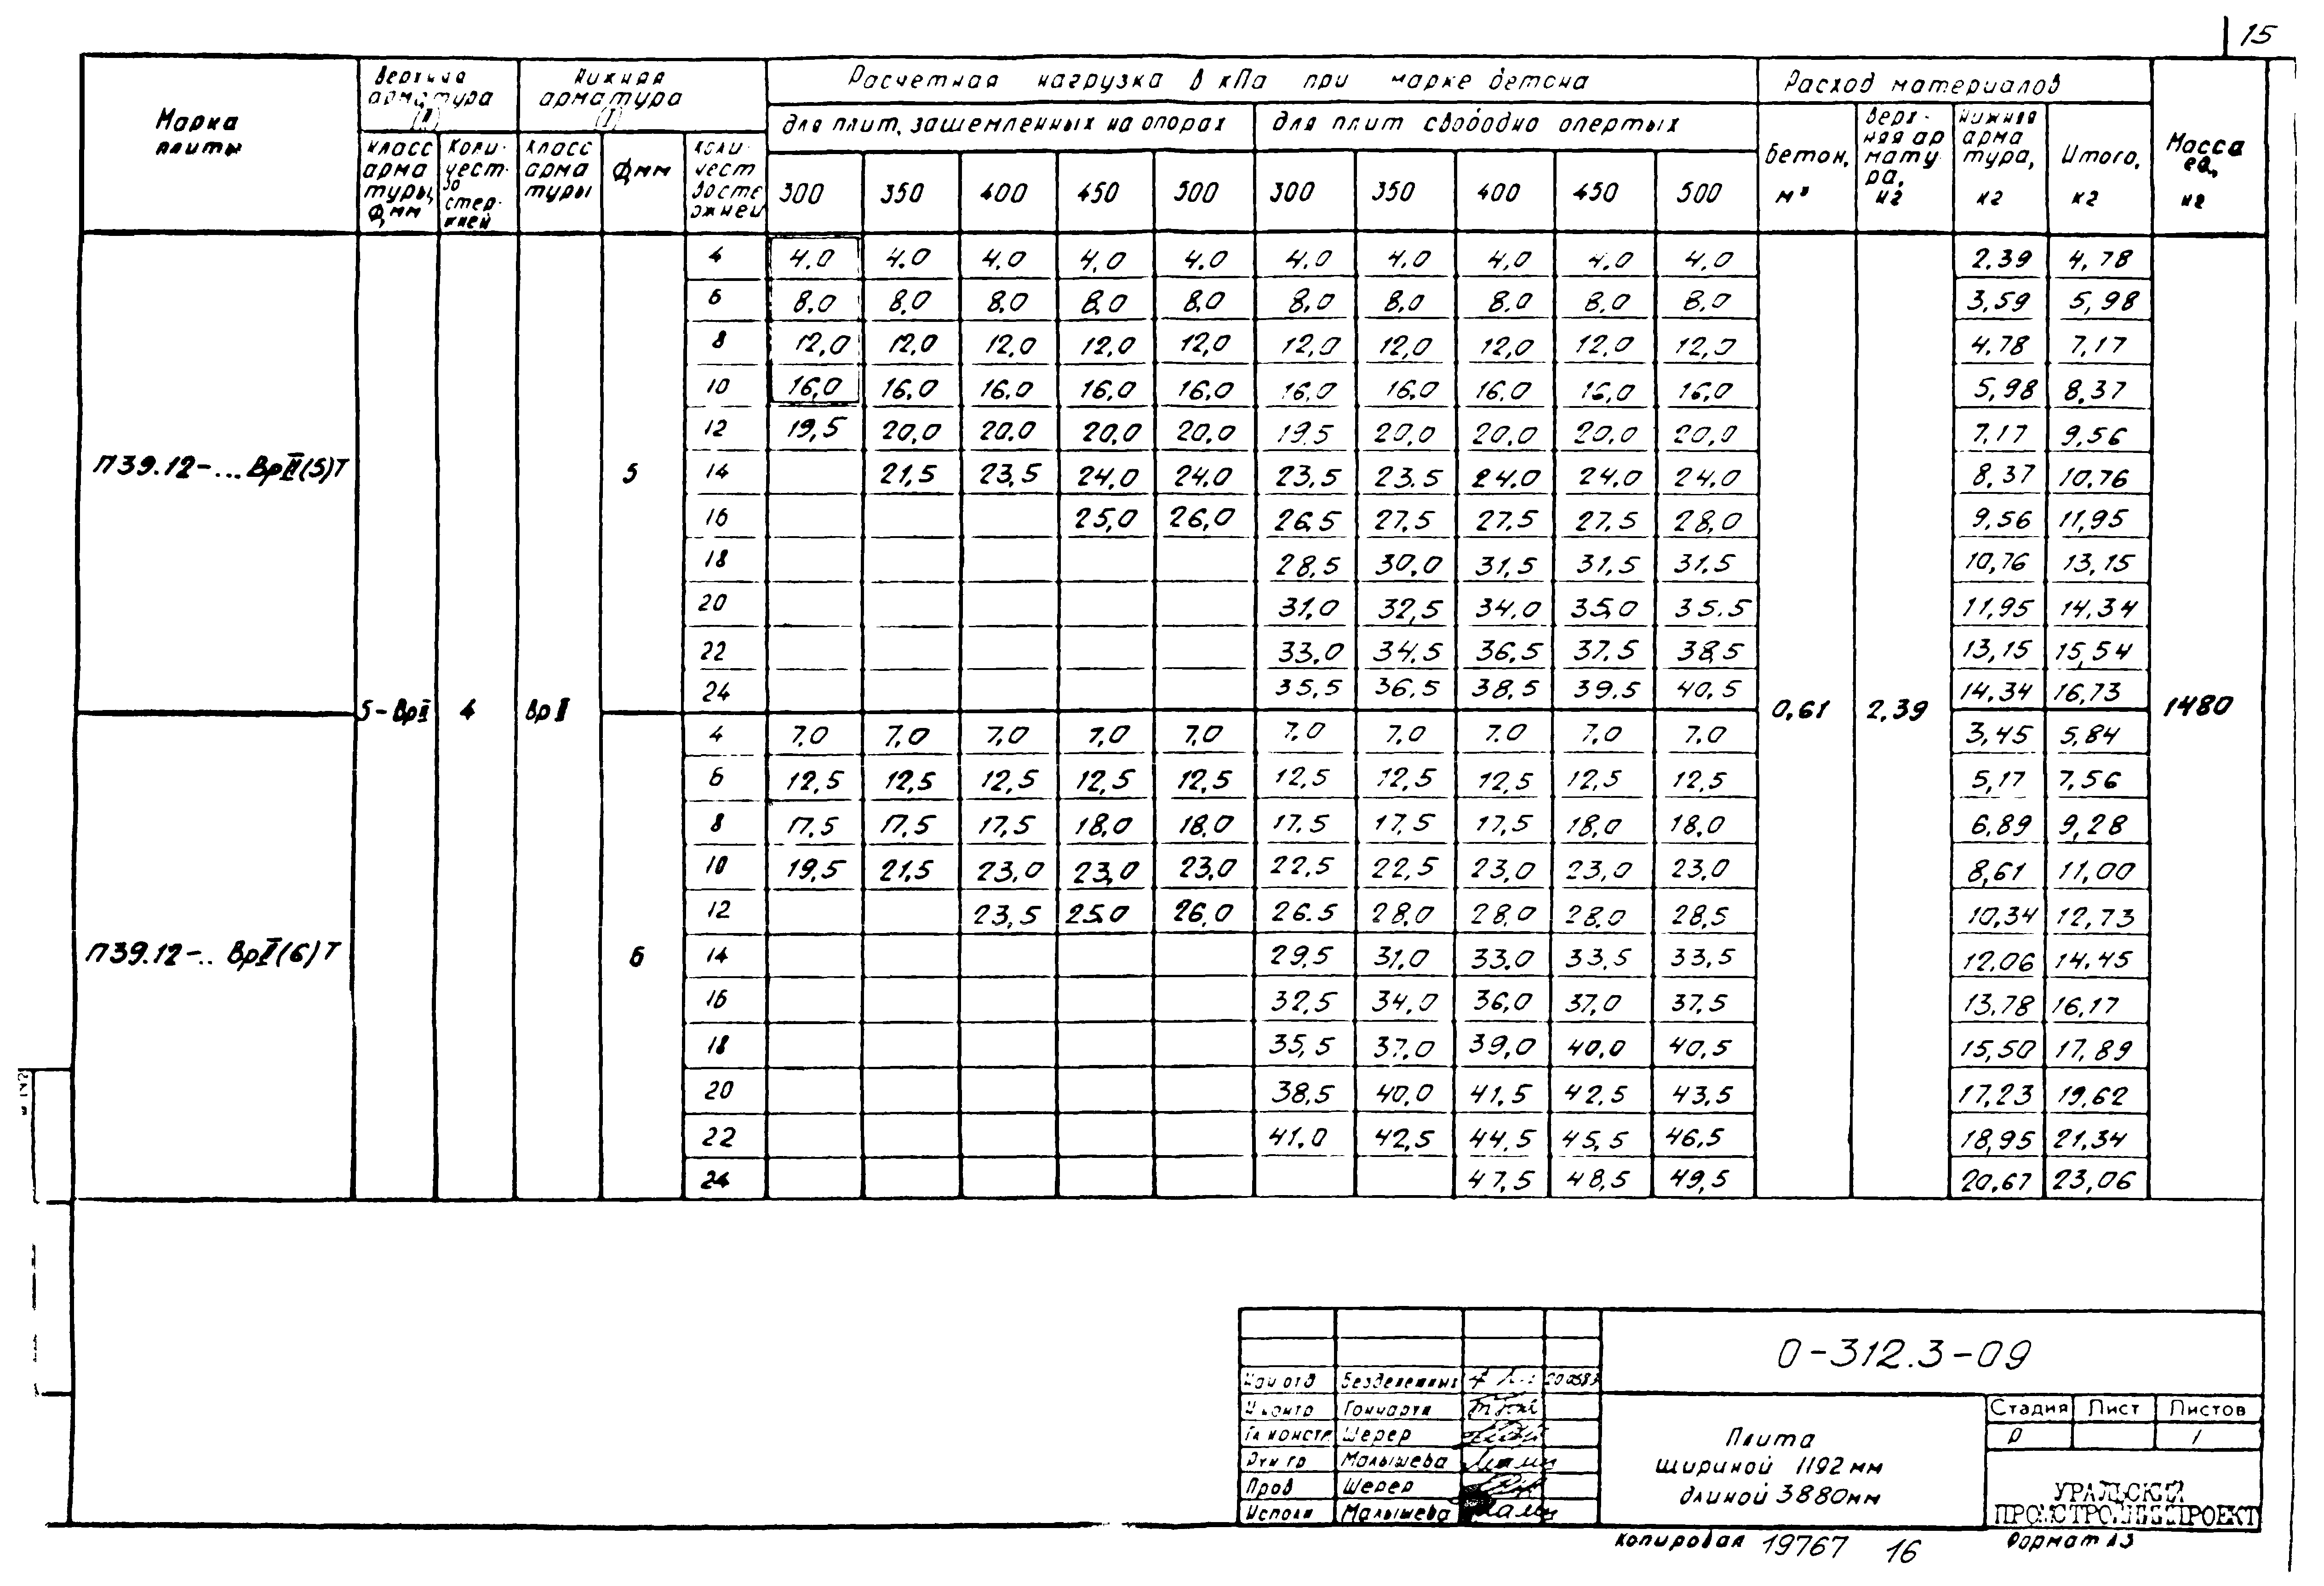 15
Марка плиты
Верхняя арматура (II)
Нижняя арматура (I)
Расчетная нагрузка в кПа при марке бетона
Расход материалов
Масса ед, кг
для плит, защемленных на опорах
для плит свободно опертых
класс арматуры, Ф мм
Количество стержней
класс арматуры
Ф мм
количество стержней
300 350 400 450 500 300 350 400 450 500
Бетон, м³
Верхняя арматура, кг
Нижняя арматура, кг
Итого, кг
4 4.0 4.0 4.0 4.0 4.0 4.0 4.0 4.0 4.0 4.0 2,39 4,78
6 8,0 8,0 8,0 8,0 8,0 8,0 8,0 8,0 8,0 8,0 3,59 5,98
8 12,0 12,0 12,0 12,0 12,0 12,0 12,0 12,0 12,0 12,0 4,78 7,17
10 16,0 16,0 16,0 16,0 16,0 16,0 16,0 16,0 16,0 16,0 5,98 8,37
12 19,5 20,0 20,0 20,0 20,0 19,5 20,0 20,0 20,0 20,0 7,17 9,56
П39.12-...ВрII(5)Т 5 14 21,5 23,5 24,0 24,0 23,5 23,5 24,0 24,0 24,0 8,37 10,76
16 25,0 26,0 26,5 27,5 27,5 27,5 28,0 9,56 11,95
18 28,5 30,0 31,5 31,5 31,5 10,76 13,15
20 31,0 32,5 34,0 35,0 35,5 11,95 14,34
22 33,0 34,5 36,5 37,5 38,5 13,15 15,54
24 35,5 36,5 38,5 39,5 40,5 14,34 16,73
5-ВрII 4 ВрII 0,61 2,39 1480
4 7,0 7,0 7,0 7,0 7,0 7,0 7,0 7,0 7,0 7,0 3,45 5,84
6 12,5 12,5 12,5 12,5 12,5 12,5 12,5 12,5 12,5 12,5 5,17 7,56
8 17,5 17,5 17,5 18,0 18,0 17,5 17,5 17,5 18,0 18,0 6,89 9,28
10 19,5 21,5 23,0 23,0 23,0 22,5 22,5 23,0 23,0 23,0 8,61 11,00
12 23,5 25,0 26,0 26,5 28,0 28,0 28,0 28,5 10,34 12,73
П39.12-.. ВрII(6)Т 6 14 29,5 31,0 33,0 33,5 33,5 12,06 14,45
16 32,5 34,0 36,0 37,0 37,5 13,78 16,17
18 35,5 37,0 39,0 40,0 40,5 15,50 17,89
20 38,5 40,0 41,5 42,5 43,5 17,23 19,62
22 41,0 42,5 44,5 45,5 46,5 18,95 21,34
24 47,5 48,5 49,5 20,67 23,06
0-312.3-09
Нач отд Бездележных
Н контр
Гл констр Шерер
Рук гр Малышева
Пров Шерер
Исполн Малышева
Плита
шириной 1192 мм
длиной 3880 мм
Стадия Лист Листов
Р 1
УРАЛЬСКИЙ
ПРОМСТРОЙНИИПРОЕКТ
Копировал 19767 16 Формат А3